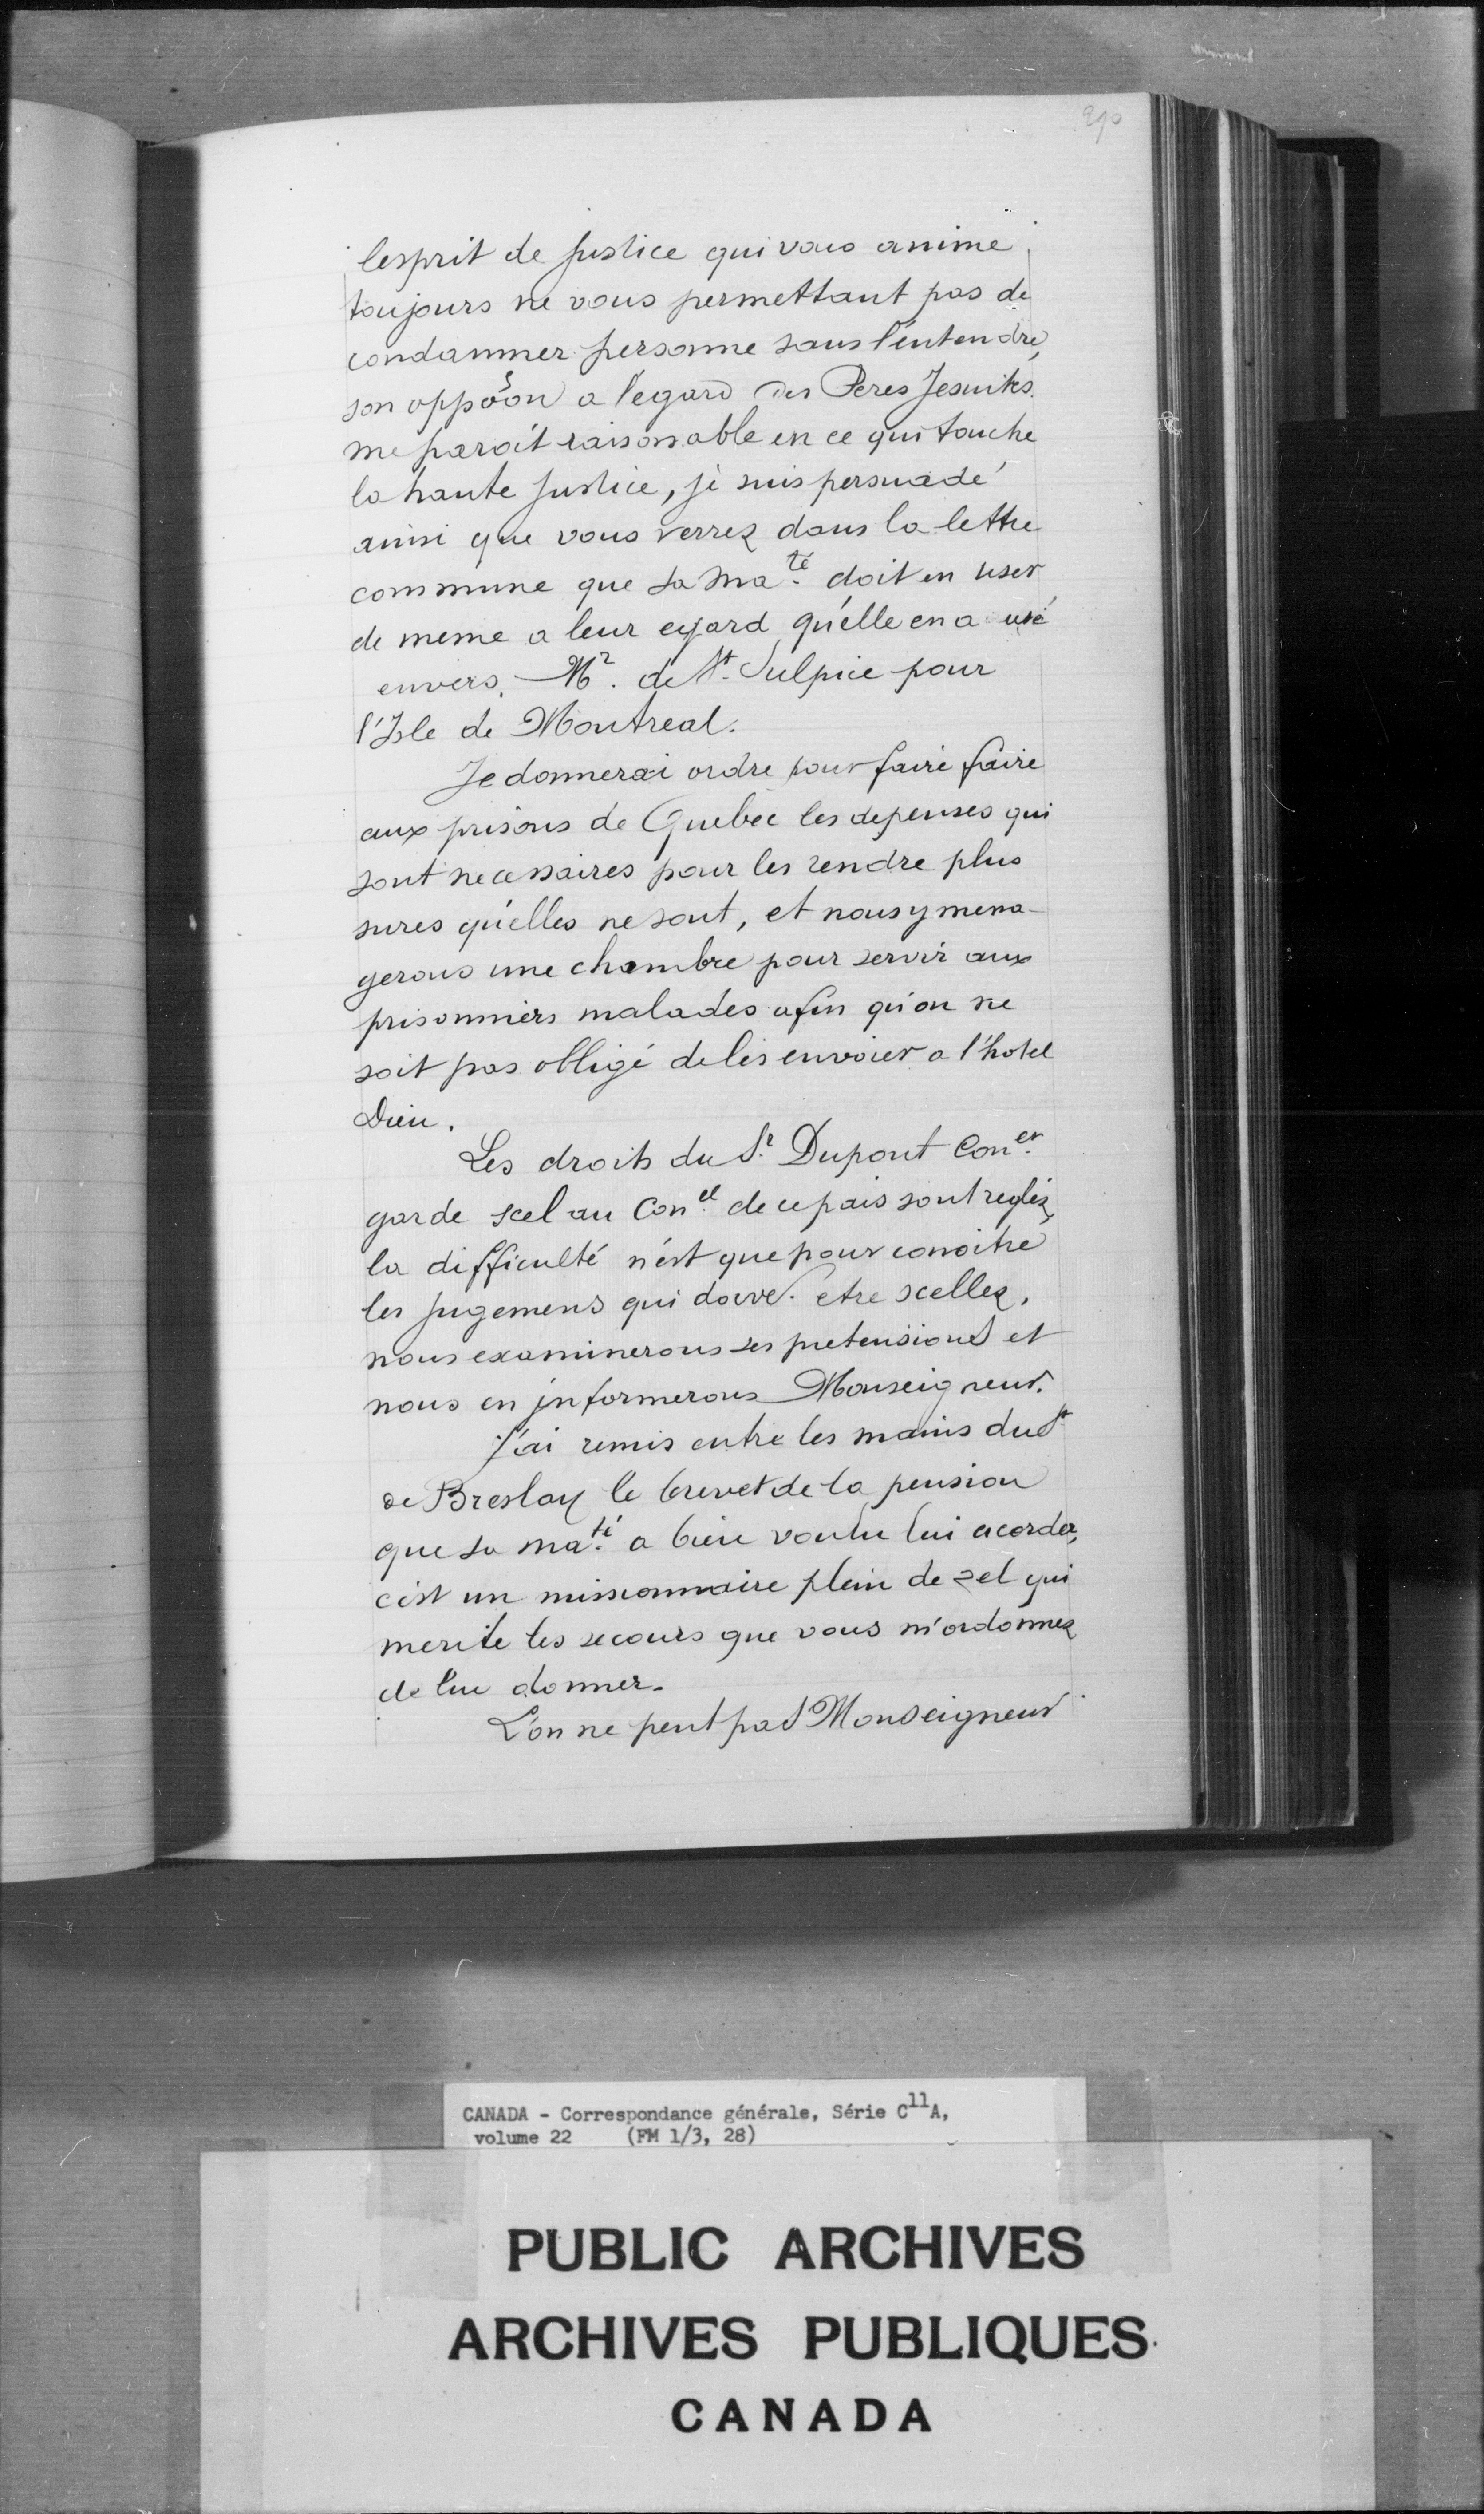 lesprit de justice qui vous anime
toujours ne vous permettant pas de
condamner personne sans l'entendre,
son oppõon a l'egard des Peres Jesuites
me paroît raisonable en ce qui touche
la haute justice, je suis persuadé
ainsi que vous verrez dans la lettre
commune que sa Ma.té doit en user
de meme a leur egard qu'elle en a usé
envers Mr. de St. Sulpice pour
l'Isle de Montreal.
Je donnerai ordre pour faire faire
aux prisons de Quebec les depenses qui
sont necessaires pour les rendre plus
sures qu'elles ne sont, et nous y mena-
gerons une chambre pour servir aux
prisonniers malades afin qu'on ne
soit pas obligé de les envoier a l'hotel
Dieu.
Les droits du Sr. Dupont Con.er
garde scel au Con.el de ce pais sont reglez,
la difficulté n'est que pour conoitre
les jugemens qui doive. etre scellez,
nous examinerons ses pretensions et
nous en informerons Monseigneur.
J'ai remis entre les mains du Sr
de Breslay le brevet de la pension
que sa Ma.té a bien voulu lui acorder,
c'est un missionnaire plein de zel qui
merite les secours que vous m'ordonnez
de lui donner.
L'on ne peut pas Monseigneur
CANADA - Correspondance générale, Série C11A,
volume 22 (FM 1/3, 28)
PUBLIC ARCHIVES
ARCHIVES PUBLIQUES
CANADA